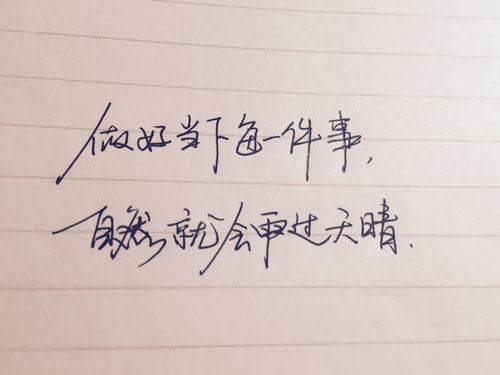 做好当下每一件事,
自然就会雨过天晴.